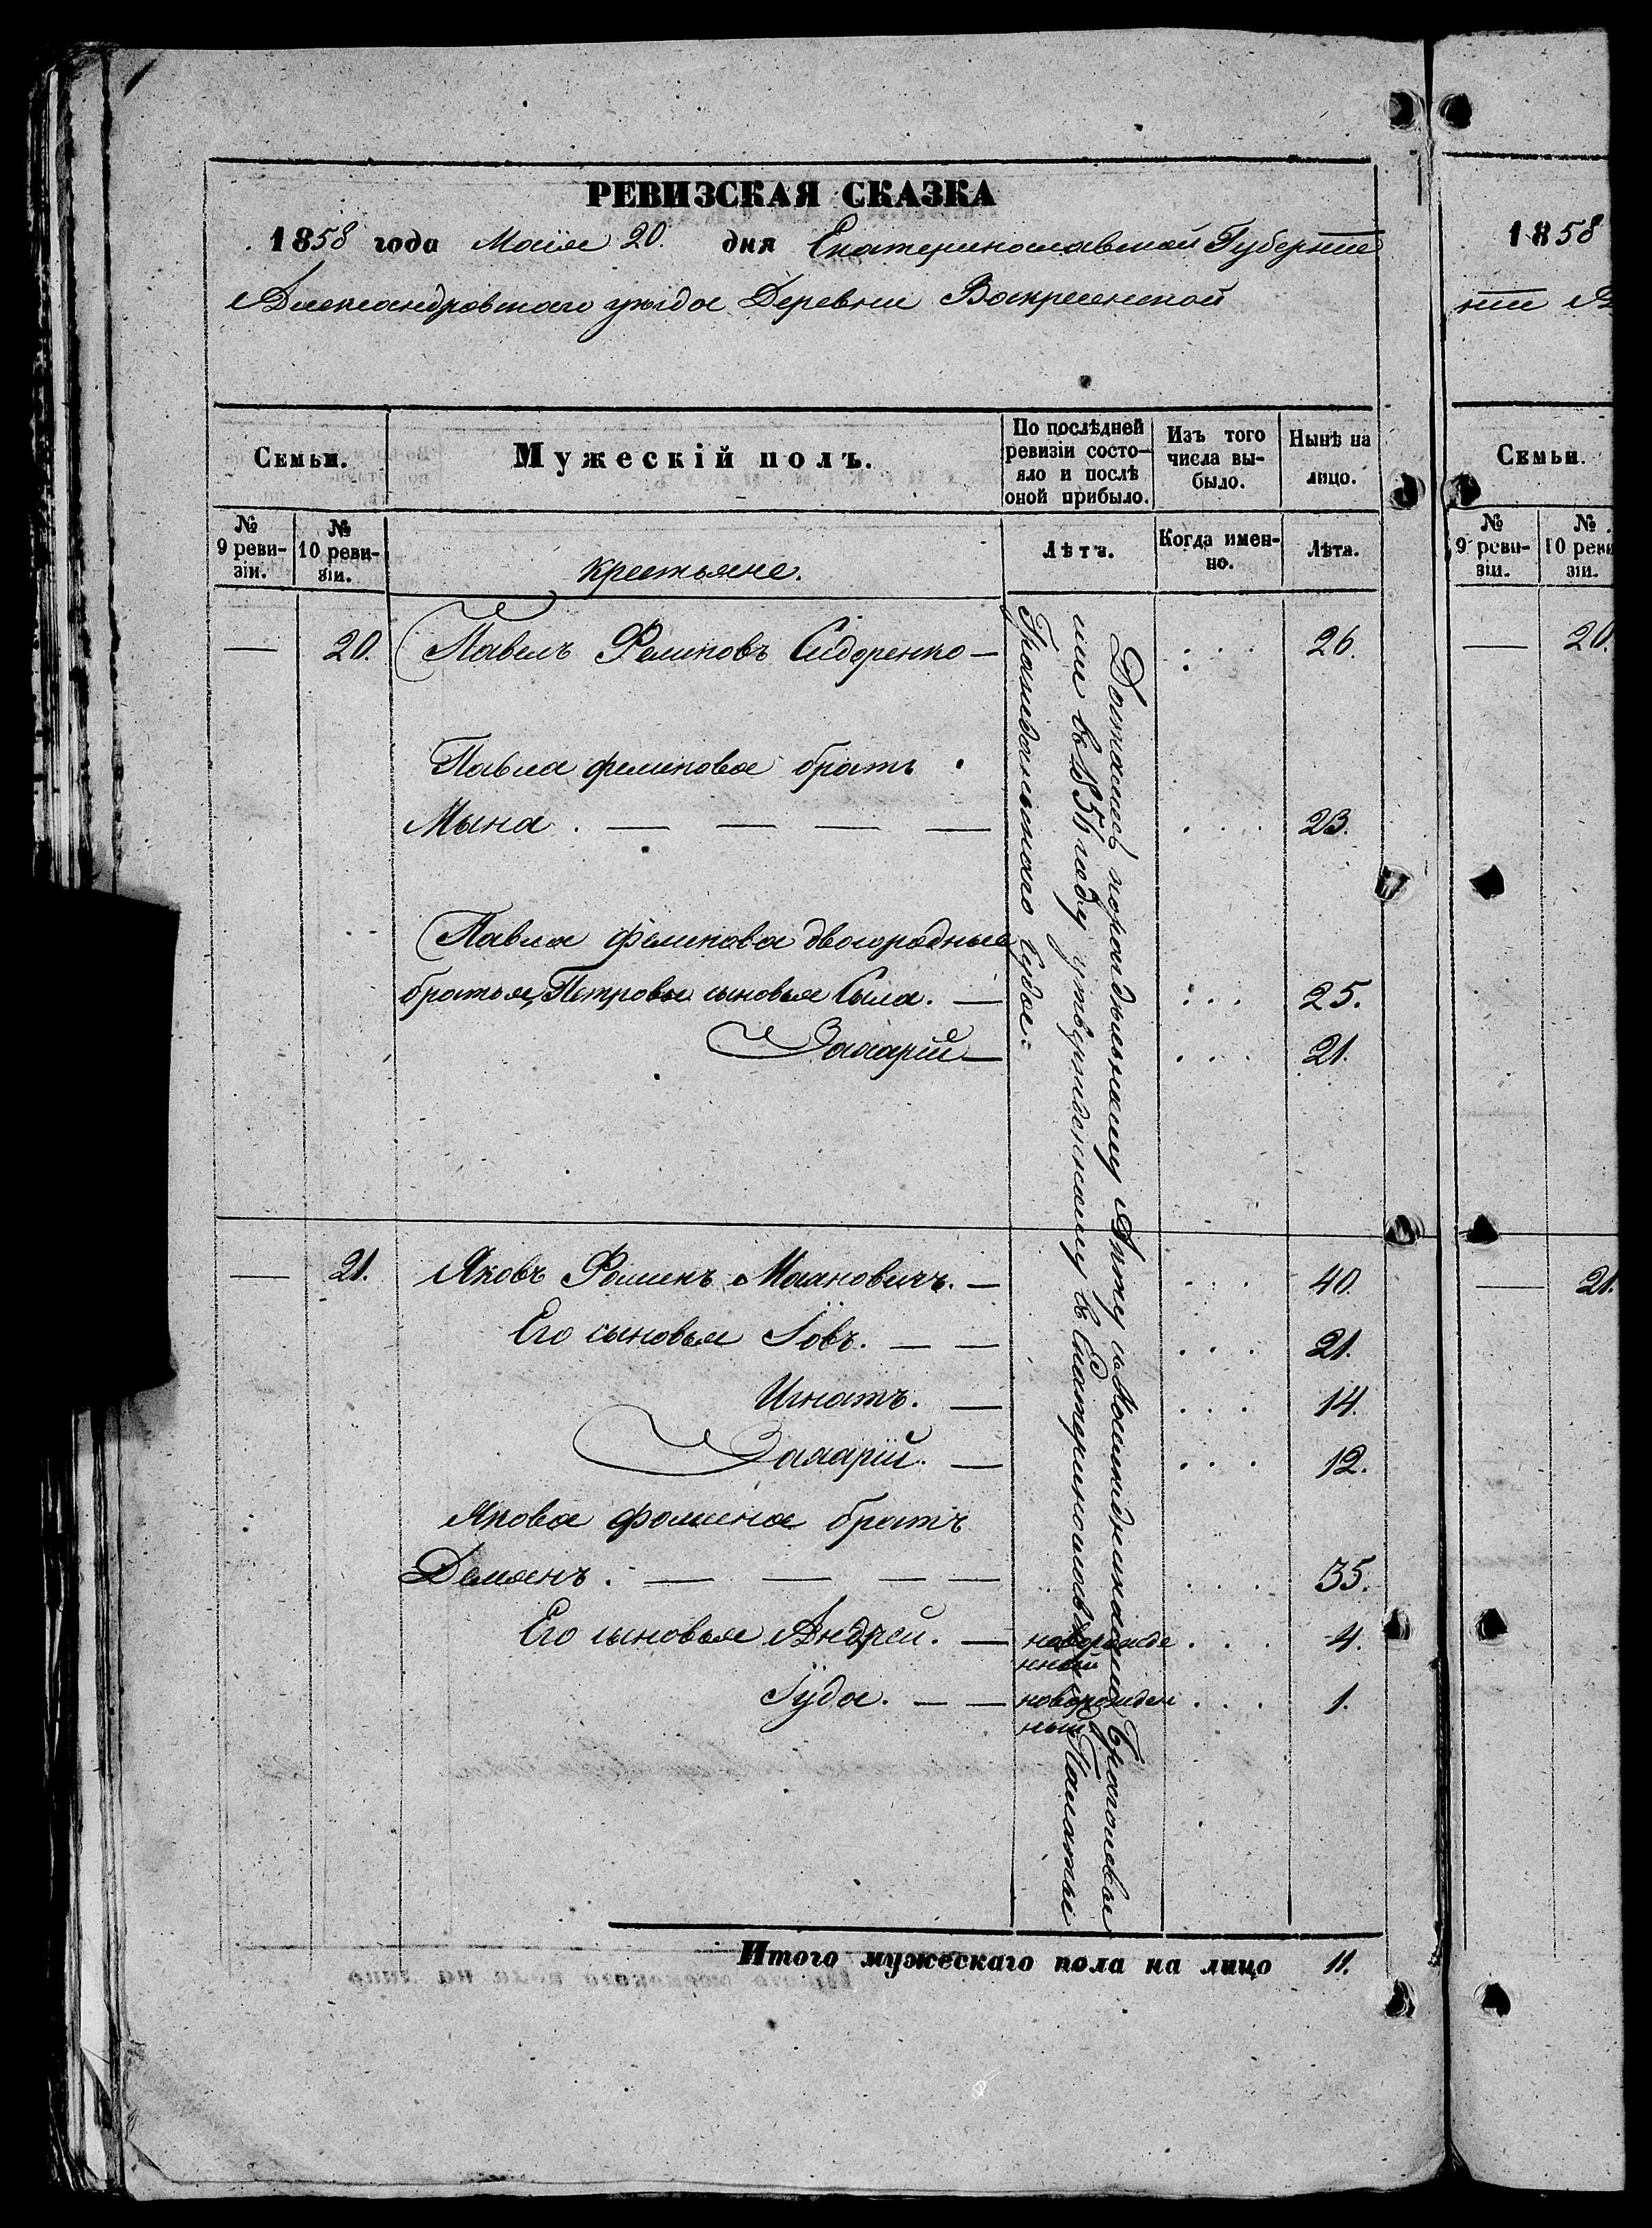 РЕВИЗСКАЯ СКАЗКА
1858 года Маія 20. дня Екатеринославской Губерніи
Александровскаго уѣзда Деревни Воскресенской
Семьи.
Мужескій полъ.
По послѣдней ревизіи состо-
яло и послѣ оной прибыло.
Изъ того числа вы-
было.
Нынѣ на лицо.
№ 9 реви-
зіи.
№ 10 реви-
зіи.
Крестьяне.
Лѣта.
Когда имен-
но.
Лѣта.
— 20. Павелъ Филиповъ Сидоренко — . . . 26.
Павла филипова братъ
Мына . — — — — . . . 23.
Павла филипова двоюродные
братья, Петровы сыновья Сыла. — . . . 25.
Захарій — . . . 21.
— 21. Яковъ Фоминъ Маановичъ. — . . . 40.
Его сыновья Іовъ. — — . . . 21.
Игнатъ. — . . . 14.
Захарій. — . . . 12.
Якова фомина братъ
Демянъ. — — — — . . . 35.
Его сыновья Андрей. — новорожде
нный . . . 4.
Іуда. — — новорожден
ный . . . 1.
Достались пораздѣльному Акту
ши въ 1856 году утвержденному въ Екатеринославской Палатѣ
Гражданскаго Суда.
Итого мужескаго пола на лицо 11.
1858
ніи А
Семьи.
№ 9 реви-
зіи.
№ 10 реви
зіи.
— 20.
— 21.